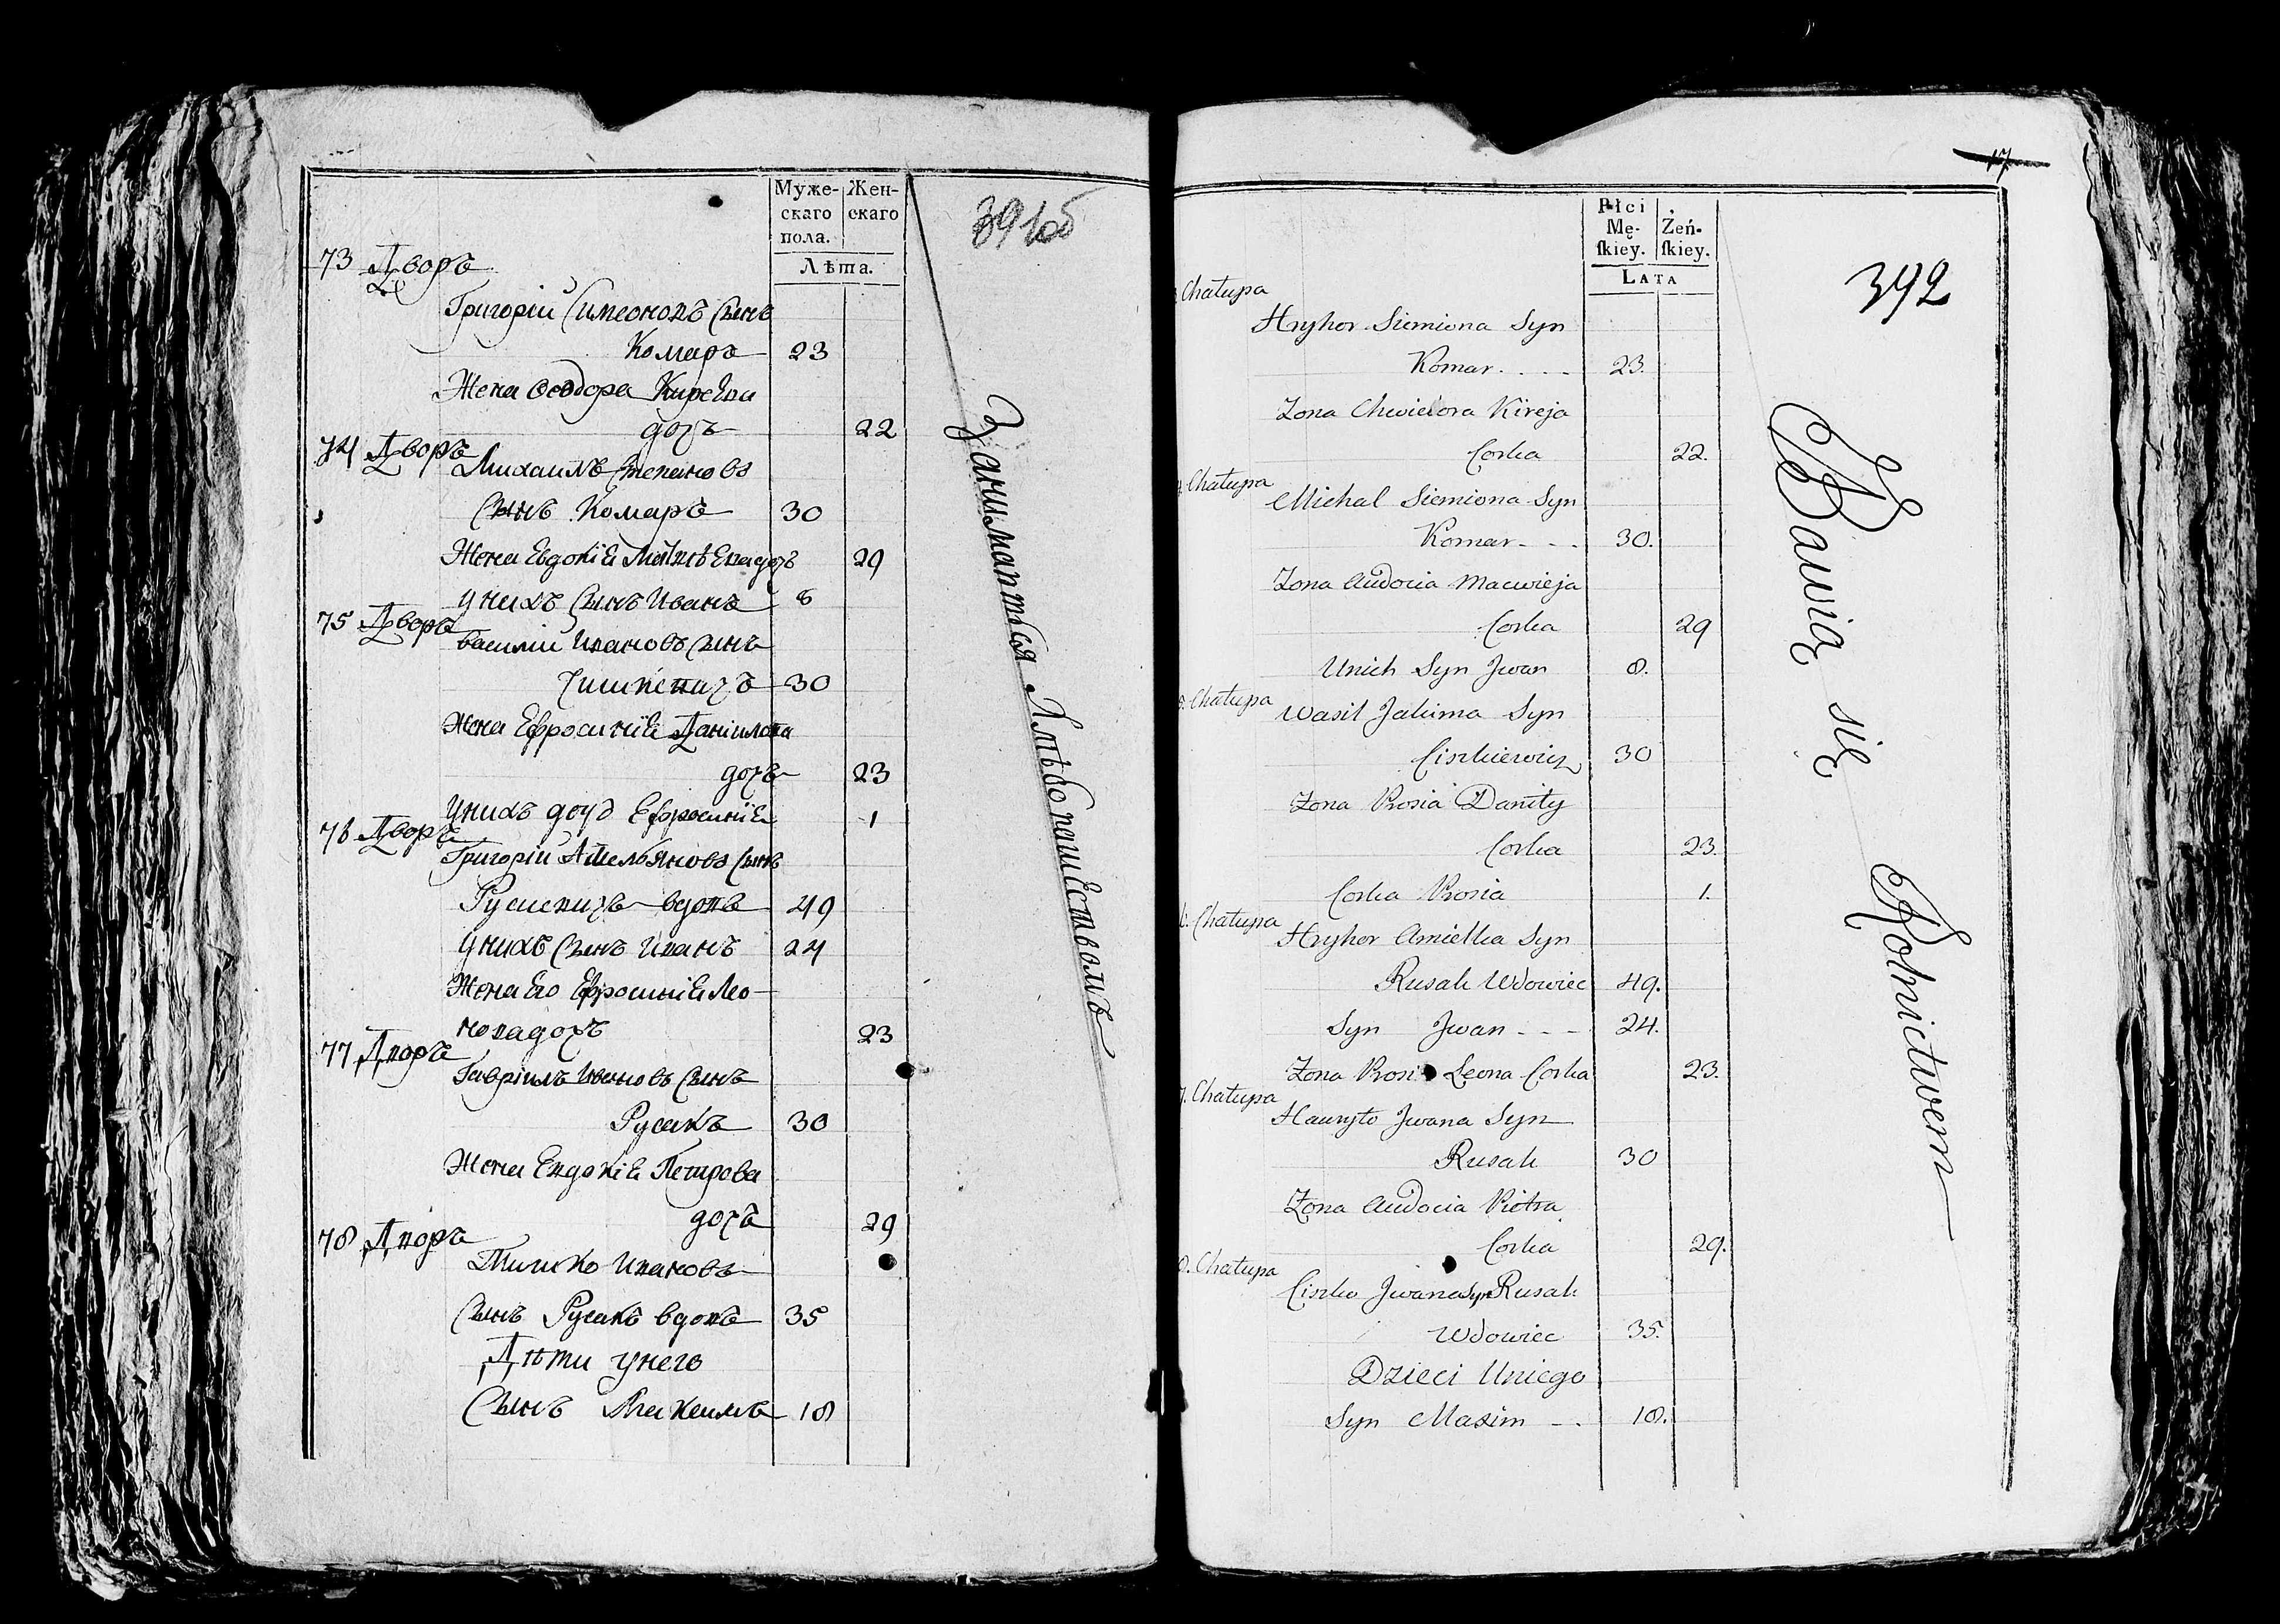 391об
Муже- Жен-
скаго скаго
пола.
Лѣта.
73 Дворъ
Григорій Симеоновъ Сынъ
Комаръ 23
Жена Феодора Киреева
дочъ 22
74 Дворъ
Михаилъ Степановъ
Сынъ Комаръ 30
Жена Евдокіѣ Матвѣева дочъ 29
У нихъ Сынъ Иванъ 8
75 Дворъ
Василій Ивановъ Сынъ
30
Жена Ефросиніѣ Данілова
дочъ 23
У нихъ дочъ Ефросиніѣ 1
76 Дворъ
Григорій Амельяновъ Сынъ
вдовъ 49
У нихъ Сынъ Иванъ 24
Жена Его Ефросиніѣ Лео-
нова дочъ 23
77 Дворъ
Гавріилъ Ивановъ Сынъ
Русакъ 30
Жена Евдокіѣ Петрова
дочъ 29
78 Дворъ
Тишко Ивановъ
Сынъ Русакъ вдовъ 35
Дѣти у него
Сынъ Максимъ 18
Занимаются Хлѣбопашествомъ
17
392
Płci Żeń-
Mę- ſkiey.
ſkiey.
LATA
Chałupa
Hryhor Siemiona Syn
Komar. . . . 23.
Zona Chwiedora Kireja
Corka 22.
Chałupa
Michal Siemiona Syn
Komar - . . 30.
Zona Audocia Macwieja
Corka 29
Unich Syn Jwan 8.
Chałupa
Wasil Jakima Syn
Ciszkiewicz 30
Zona Prosia Daniły
Corka 23.
Corka Prosia 1.
Chałupa
Hryhor Amielka Syn
Rusak Wdowiec 49.
Syn Jwan - - - 24.
Zona Leona Corka 23.
Chałupa
Hauryło Jwana Syn
Rusak 30
Zona Audocia Piotra
Corka 29.
Chałupa
Ciszko Jwana Syn Rusak
Wdowiec 35.
Dzieci Uniego
Syn Maxim - . 18.
Bawią się Rolnictwem